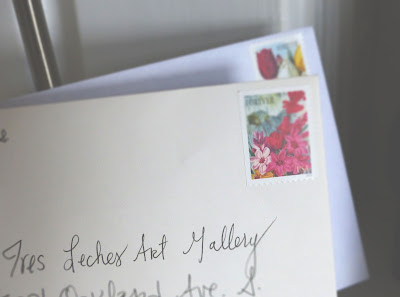 e
Tres Leches Art Gallery
Oakland Ave. S.